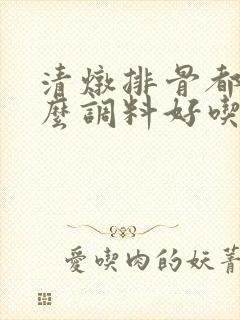 清燉排骨都
麼調料好喫
愛喫肉的妖菁